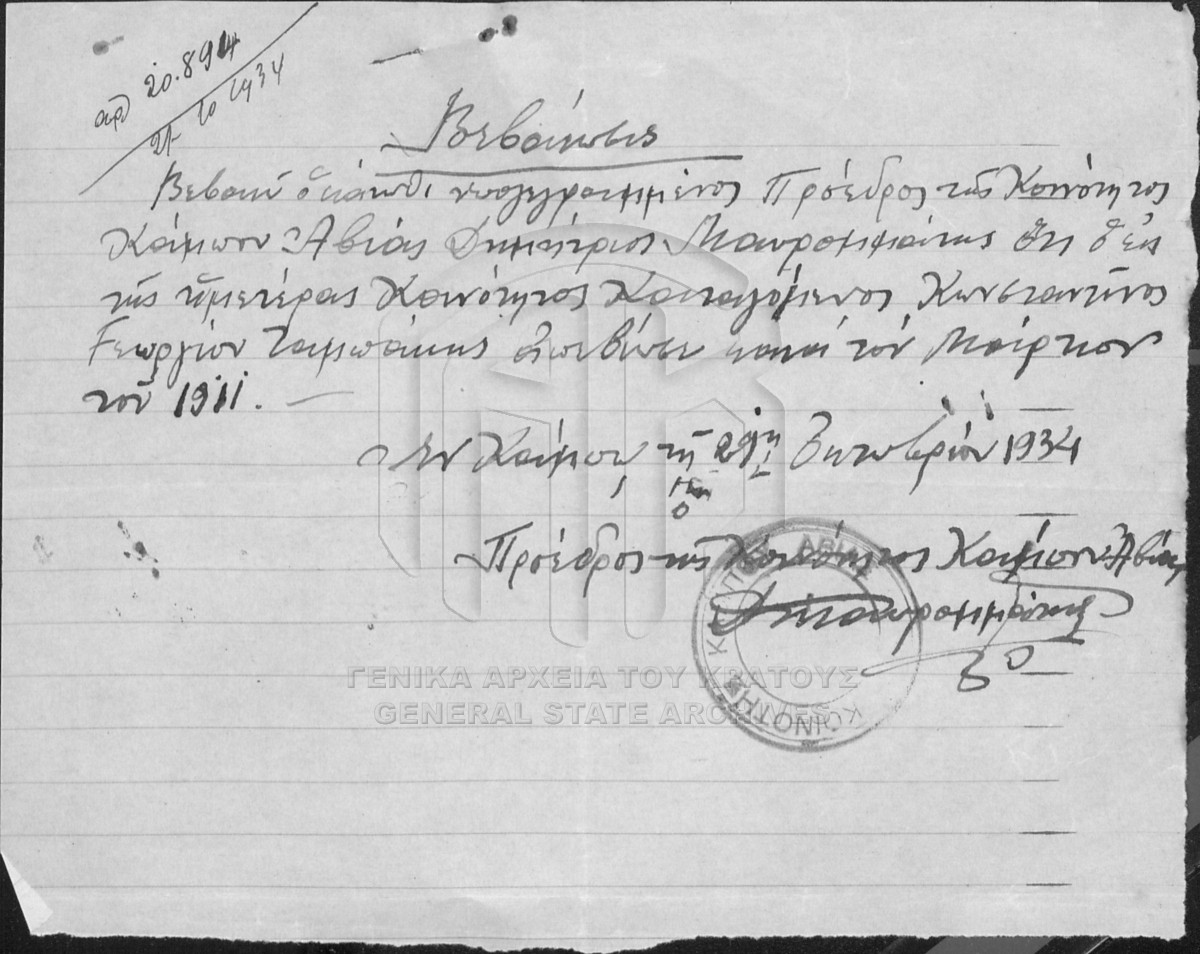 αρθ 20.894
21 10 1934
Βεβαίωσις
Βεβαιῶ ὁ κάτωθι υπογεγραμμένος Πρόεδρος τῆς Κοινότητος
Κάμπου Αβίας Δημήτριος Μαυρομμάτης ὅτι ὁ ἐκ
τῆς ἡμετέρας Κοινότητος Καταγόμενος Κωνσταντῖνος
Γεωργίου Ταμπάκης ἀπεβίωσε κατά τόν Μάρτιον
τοῦ 1911.
Ἐν Κάμπῳ τῇ 29ῃ Οκτωβρίου 1934
Ο
Πρόεδρος τῆς Κοινότητος Κάμπου Αβίας
Δ Μαυρομμάτης
ΚΟΙΝΟΤΗΣ ΚΑΜΠΟΥ ΑΒΙΑΣ
ΓΕΝΙΚΑ ΑΡΧΕΙΑ ΤΟΥ ΚΡΑΤΟΥΣ
GENERAL STATE ARCHIVES